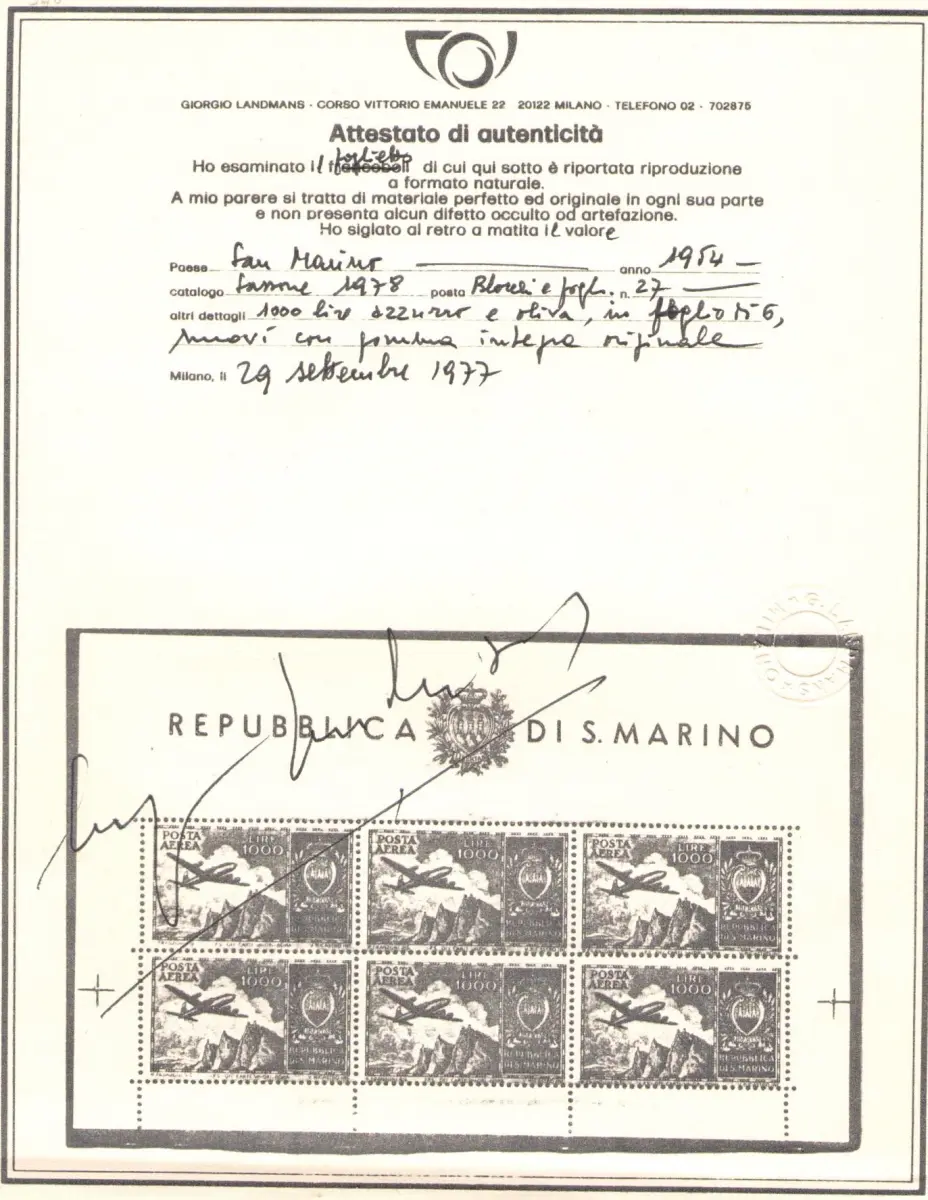 GIORGIO LANDMANS - CORSO VITTORIO EMANUELE 22 20122 MILANO - TELEFONO 02 - 702875
Attestato di autenticità
Ho esaminato il foglietto di cui qui sotto è riportata riproduzione
a formato naturale.
A mio parere si tratta di materiale perfetto ed originale in ogni sua parte
e non presenta alcun difetto occulto od artefazione.
Ho siglato al retro a matita il valore
Paese San Marino anno 1954
catalogo Sassone 1978 posta Blocchi e fogli. n. 27
altri dettagli 1000 lire azzurro e oliva, in foglio di 6,
nuovi con gomma integra originale
Milano, li 29 settembre 1977
REPUBBLICA DI S. MARINO
POSTA AEREA LIRE 1000 REPUBBLICA DI S. MARINO
POSTA AEREA LIRE 1000 REPUBBLICA DI S. MARINO
POSTA AEREA LIRE 1000 REPUBBLICA DI S. MARINO
POSTA AEREA LIRE 1000 REPUBBLICA DI S. MARINO
POSTA AEREA LIRE 1000 REPUBBLICA DI S. MARINO
POSTA AEREA LIRE 1000 REPUBBLICA DI S. MARINO